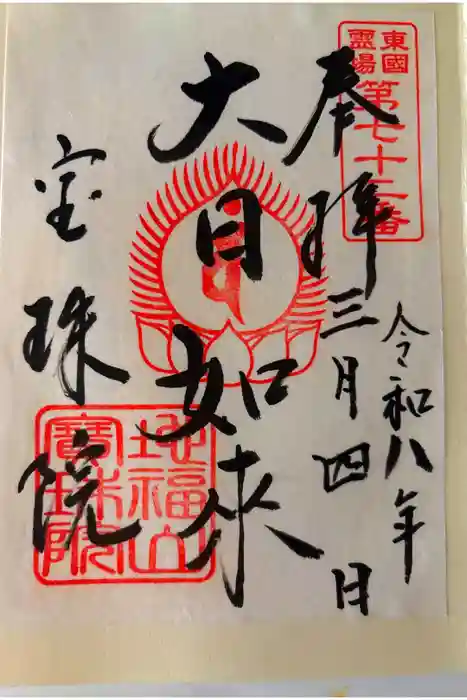 東國
靈場
第七十二番
奉拜
令和八年
三月四日
大日如来
宝珠院
地福山
寶珠院